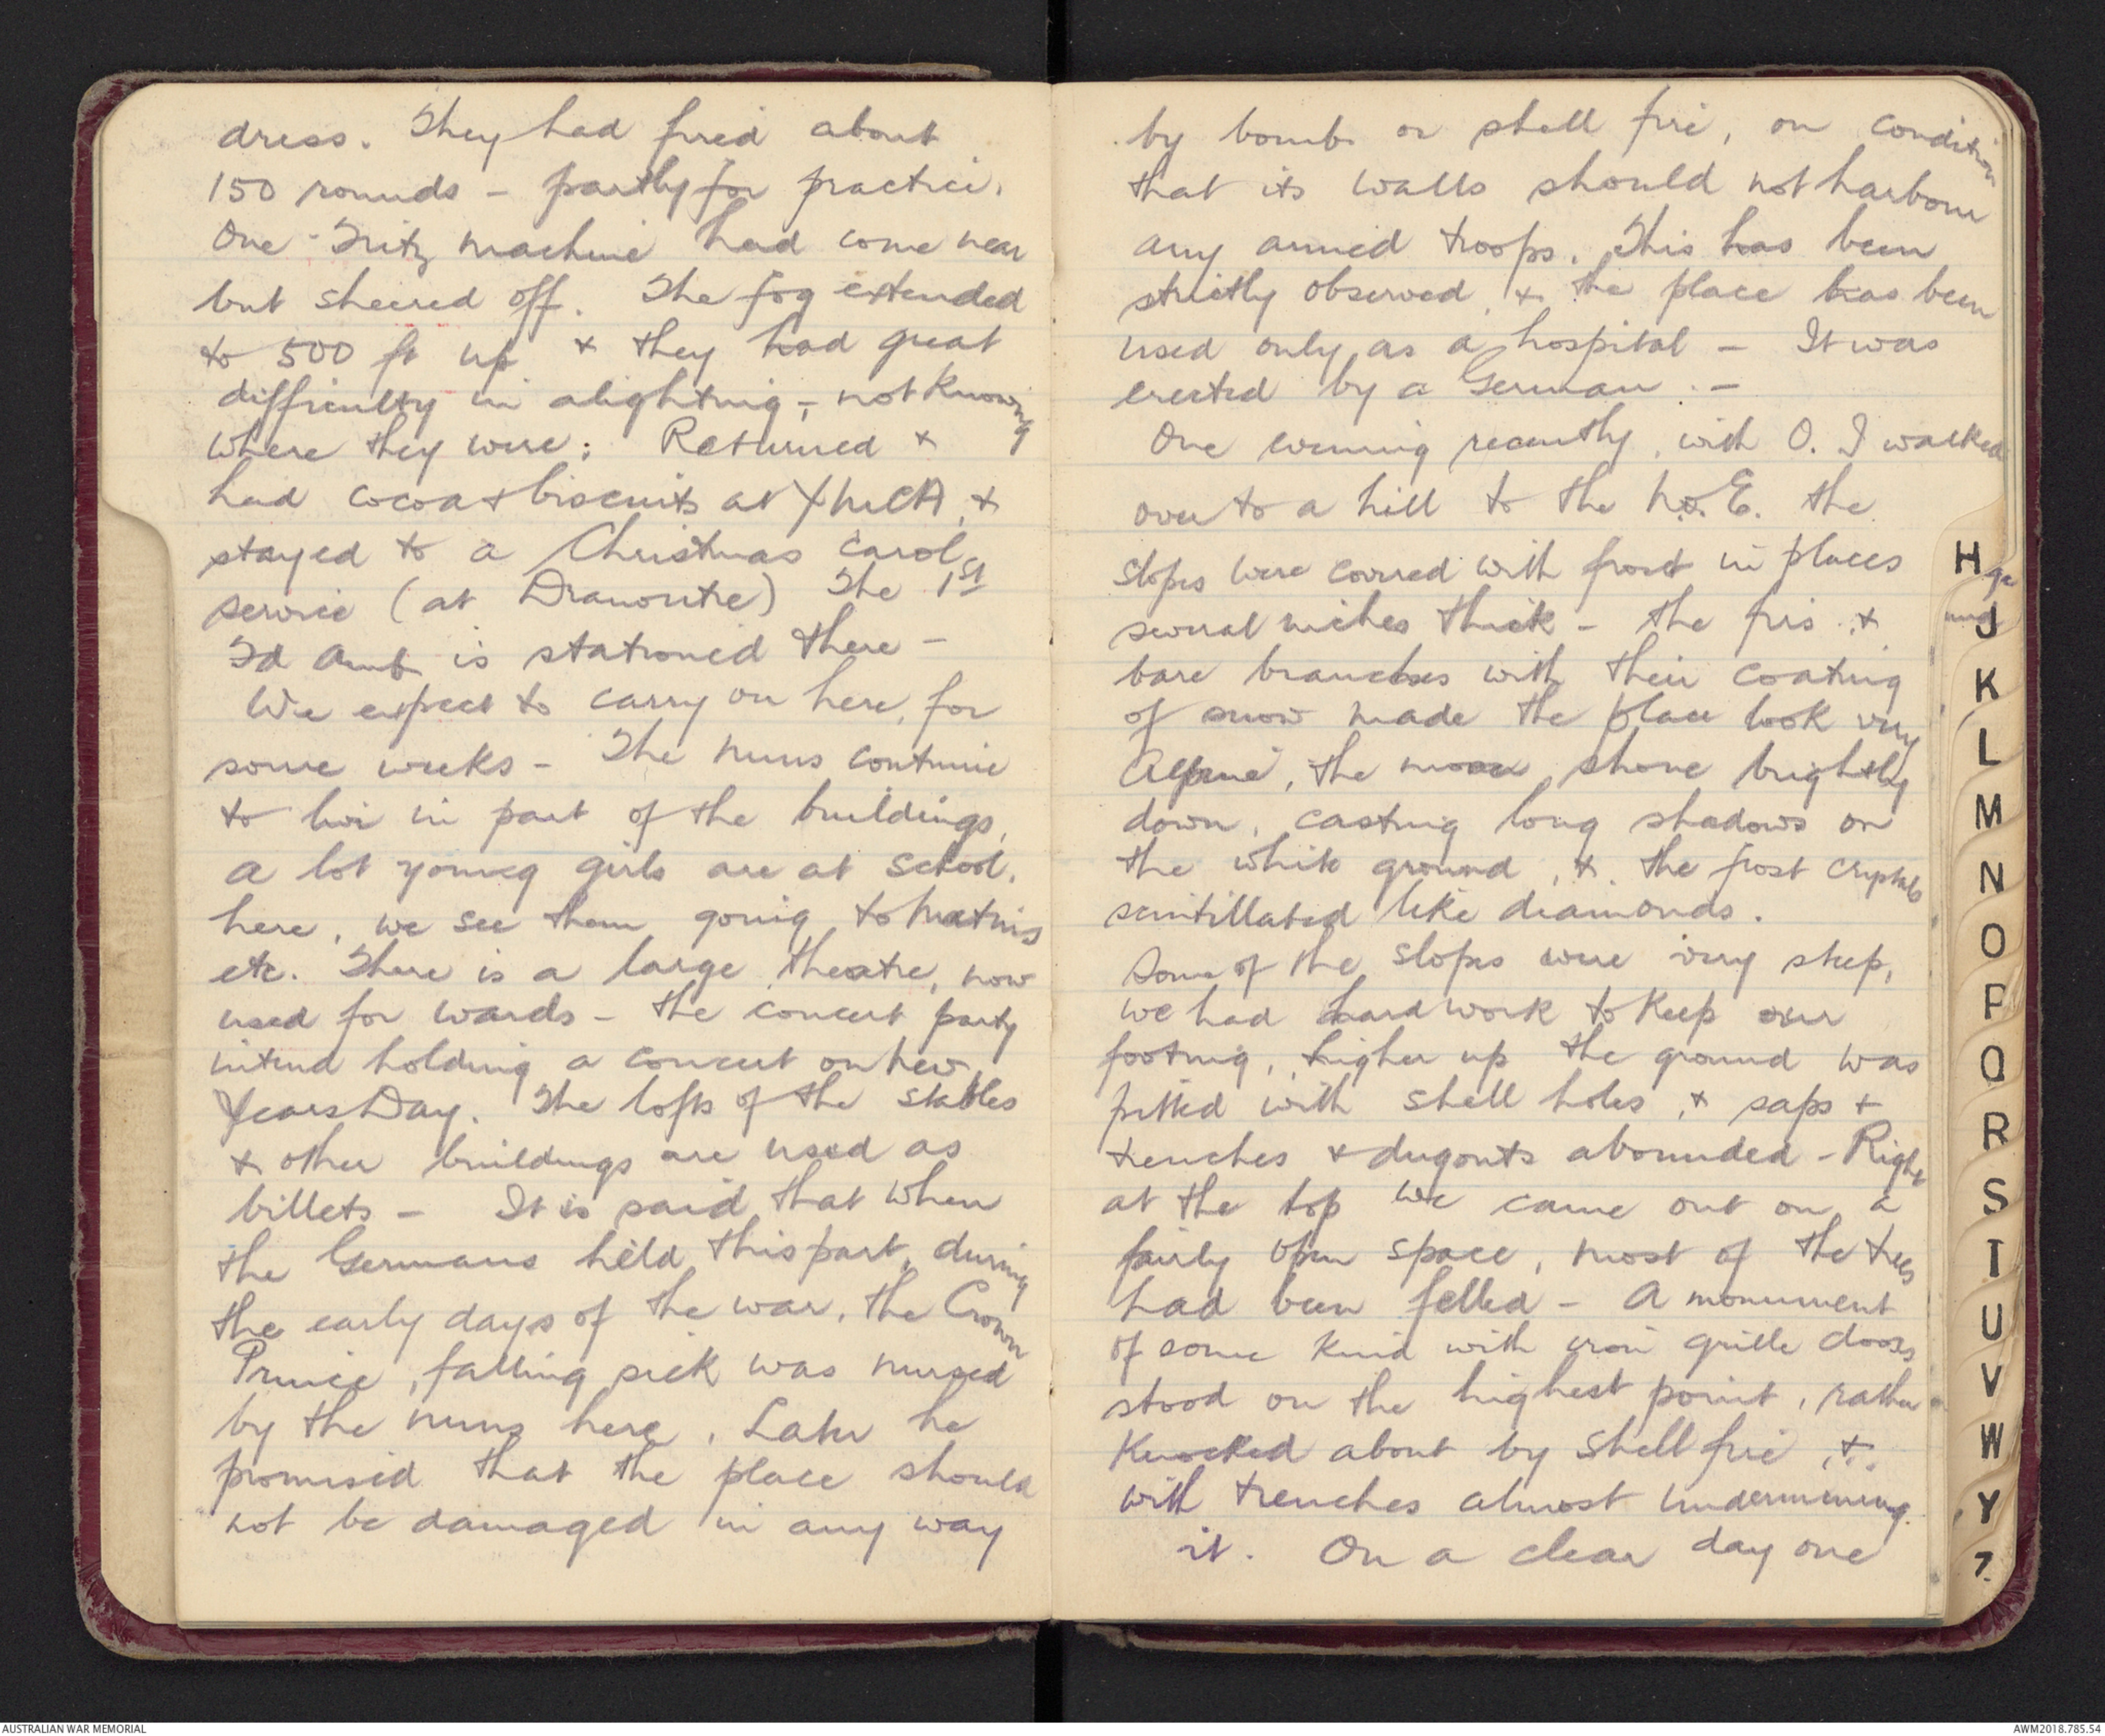 dress. They had fired about
150 rounds - partly for practice.
One Fritz machine had come near
but sheered off. The fog extended
to 500 ft up & they had great
difficulty in alighting, - not knowing
where they were; Returned &
had cocoa & biscuits at YMCA, &
stayed to a Christmas carol
service (at Dranoutre) The 1st
Fd Amb is stationed there -
We expect to carry on here, for
some weeks - The nuns continue
to live in part of the buildings,
a lot young girls are at school.
here, we see them going to Matins
etc. There is a large theatre, now
used for wards - the concert party
intend holding a concert on New
Years Day. The lofts of the stables
& other buildings are used as
billets - It is said that when
the Germans held this part, during
the early days of the war, the Crown
Prince, falling sick was nursed
by the nuns here. Later he
promised that the place should
not be damaged in any way
by bomb or shell fire, on condition
that its walls should not harbour
any armed troops. This has been
strictly observed, & the place has been
used only as a hospital - It was
erected by a German. -
One evening recently, with O. I walked
over to a hill to the N.E. the
slopes were covered with frost in places
several inches thick - the firs &
bare branches with their coating
of snow made the place look very
Alpine, the moon shone brightly
down, casting long shadows on
the white ground, & the frost crystals
scintillated like diamonds.
Some of the slopes were very steep,
we had hard work to keep our
footing, higher up the ground was
pitted with shell holes, & saps &
trenches & dugouts abounded - Right
at the top we came out on a
fairly open space, most of the trees
had been felled - A monument
of some kind with iron grille doors
stood on the highest point, rather
knocked about by shell fire, &
with trenches almost undermining
it. On a clear day one
H
J
K
L
M
N
O
P
Q
R
S
T
U
V
W
Y
Z
AUSTRALIAN WAR MEMORIAL
AWM2018.785.54